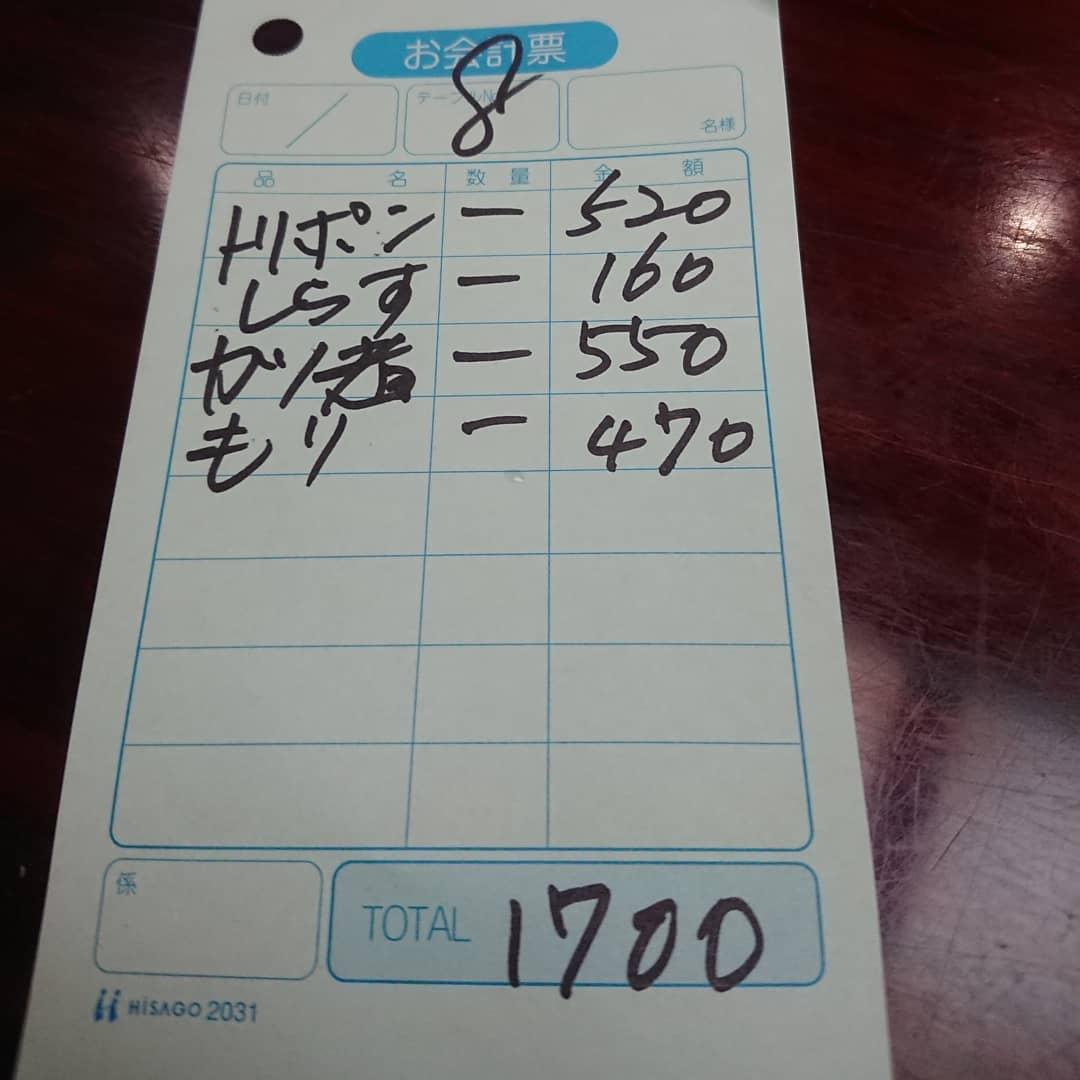 お会計票
日付 / テーブルNo. 8 名様
品名 数量 金額
トリポン 一 520
しらす 一 160
ガリ者 一 550
もり 一 470
係 TOTAL 1700
HiSAGO 2031